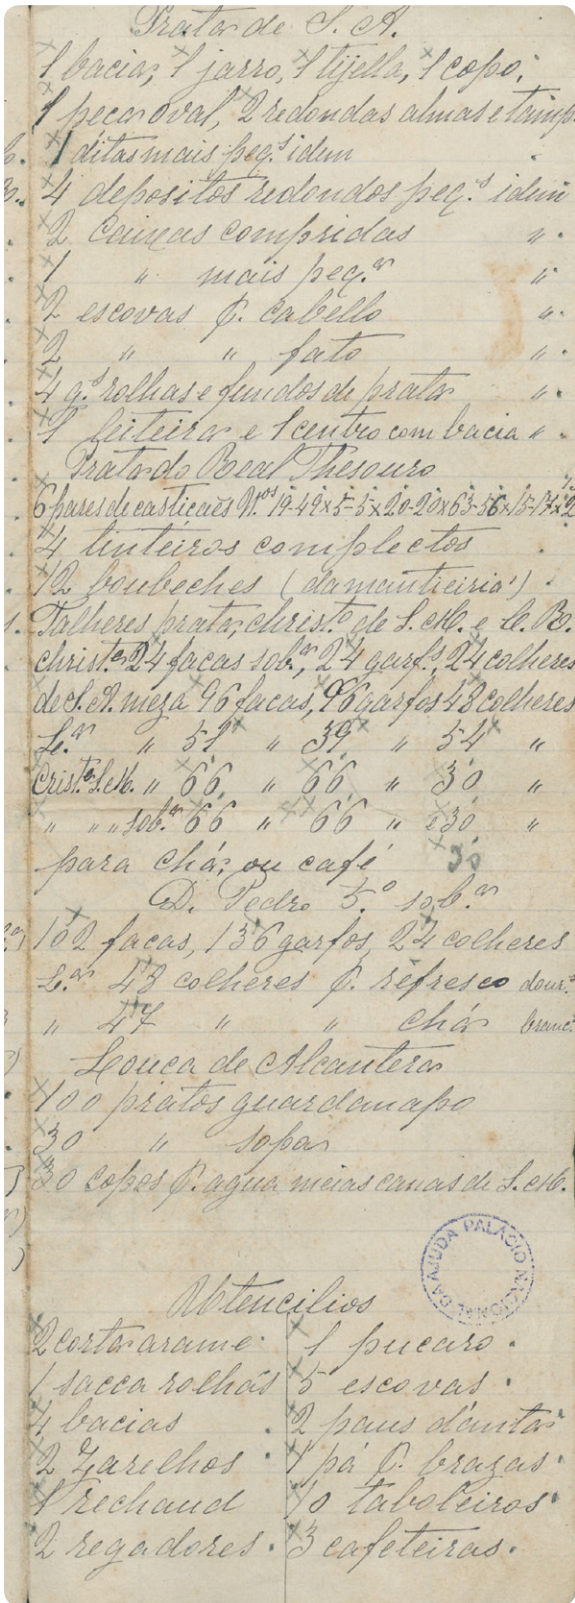 Prata de S. A.
1 bacia, 1 jarro, 1 tijella, 1 copo.
1 peça oval, 2 redondas almas e tamp.
1 ditas mais peq.s idem
4 depositos redondos peq.s idem
2 Caixas compridas "
1 " mais peq.a "
2 escovas p. cabello "
2 " " fato "
4 g.s rolhas e fundos de prata "
1 leiteira e 1 centro com bacia "
Prata do Real Thesouro
6 pares de castiçaes N.os 19-49x5-5x20-20x63-56x15-17x2
4 tinteiros complectos
12 boubeches (da mantieiria)
Talheres prata, christ.o de S. M. e C. R.
christ.o 24 facas sob.a, 24 garf.s, 24 colheres
de S. A. meza 96 facas, 96 garfos 48 colheres
S.a " 51 " 39 " 54 "
Crist.o S. M. " 66 " 66 " 30 "
" " " sob.a 66 " 66 " 30 "
para chá, ou café 30
D. Pedro 5.o sob.a
102 facas, 136 garfos, 24 colheres
S.a 48 colheres p. refresco dour.s
" 47 " " chá branc.s
Louca de Alcantera
100 pratos guardanapo
30 " sopa
30 copos p. agua meias canas de S. M.
PALACIO NACIONAL DA AJUDA
Utencilios
2 corta arame
1 sacca rolhas
4 bacias
2 Zarelhos
1 rechaud
2 regadores
1 pucaro
5 escovas
2 paus d'anta
1 pá p. brazas
10 taboleiros
3 cafeteiras